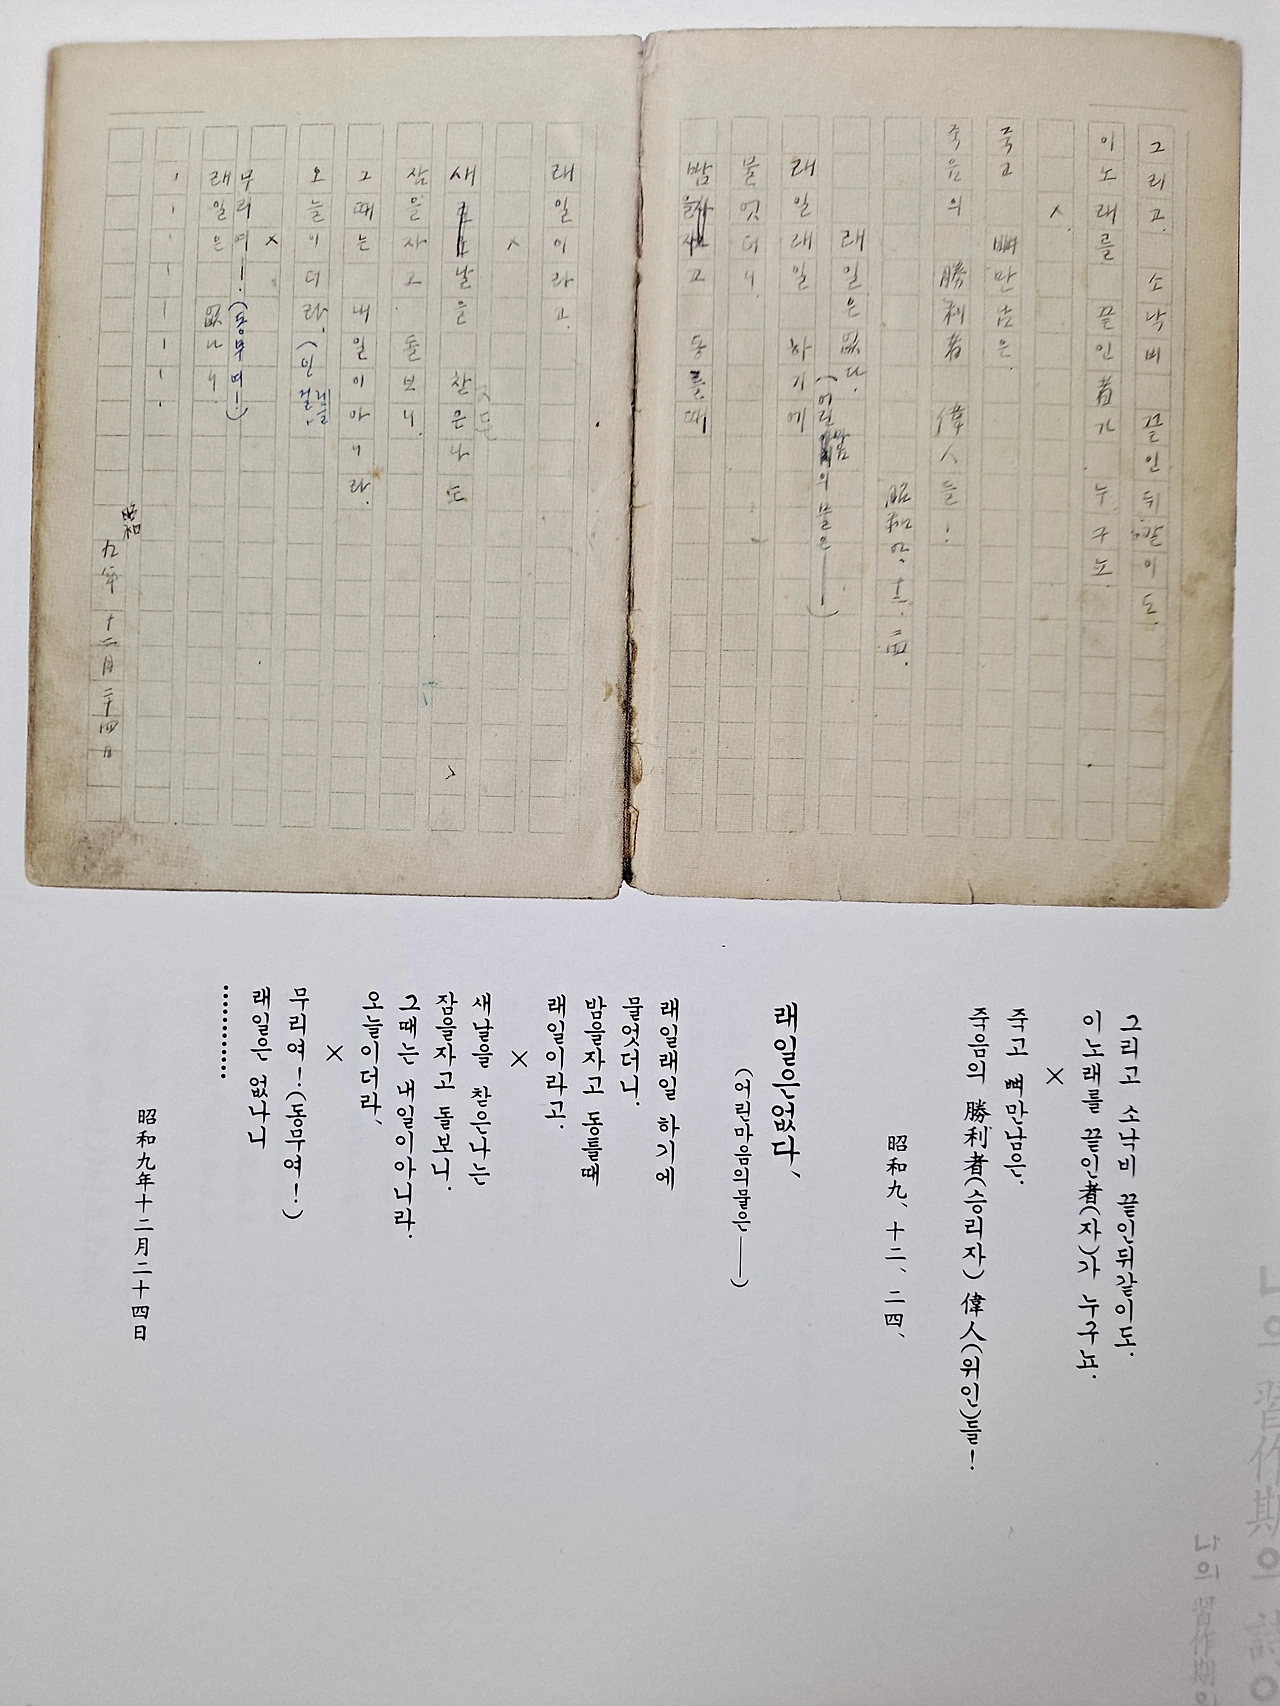 그리고. 소낙비 끝인뒤같이도.
이노래를 끝인者가 누구뇨.
×
죽고 뼈만남은.
죽음의 勝利者 偉人들!
昭和九、十二、二四.
래일은없다.
(어린마음의물은——)
래일래일 하기에
물엇더니.
밤을자고 동틀때
래일이라고.
×
새날을 찯은나도
잠을자고 돌보니.
그때는 내일이아니라.
오늘이더라.
×
무리여! (동무여!)
래일은 없나니.
昭和
九年 十二月二十四日
그리고 소낙비 끝인뒤같이도.
이노래를 끝인者(자)가 누구뇨.
×
죽고 뼈만남은.
죽음의 勝利者(승리자) 偉人(위인)들!
昭和九、十二、二四、
래일은없다、
(어린마음의물은——)
래일래일 하기에
물었더니.
밤을자고 동틀때
래일이라고.
×
새날을 찯은나는
잠을자고 돌보니.
그때는 내일이아니라.
오늘이더라、
×
무리여!(동무여!)
래일은 없나니
…………
昭和九年十二月二十四日
나의 習作期의
나의 習作期의